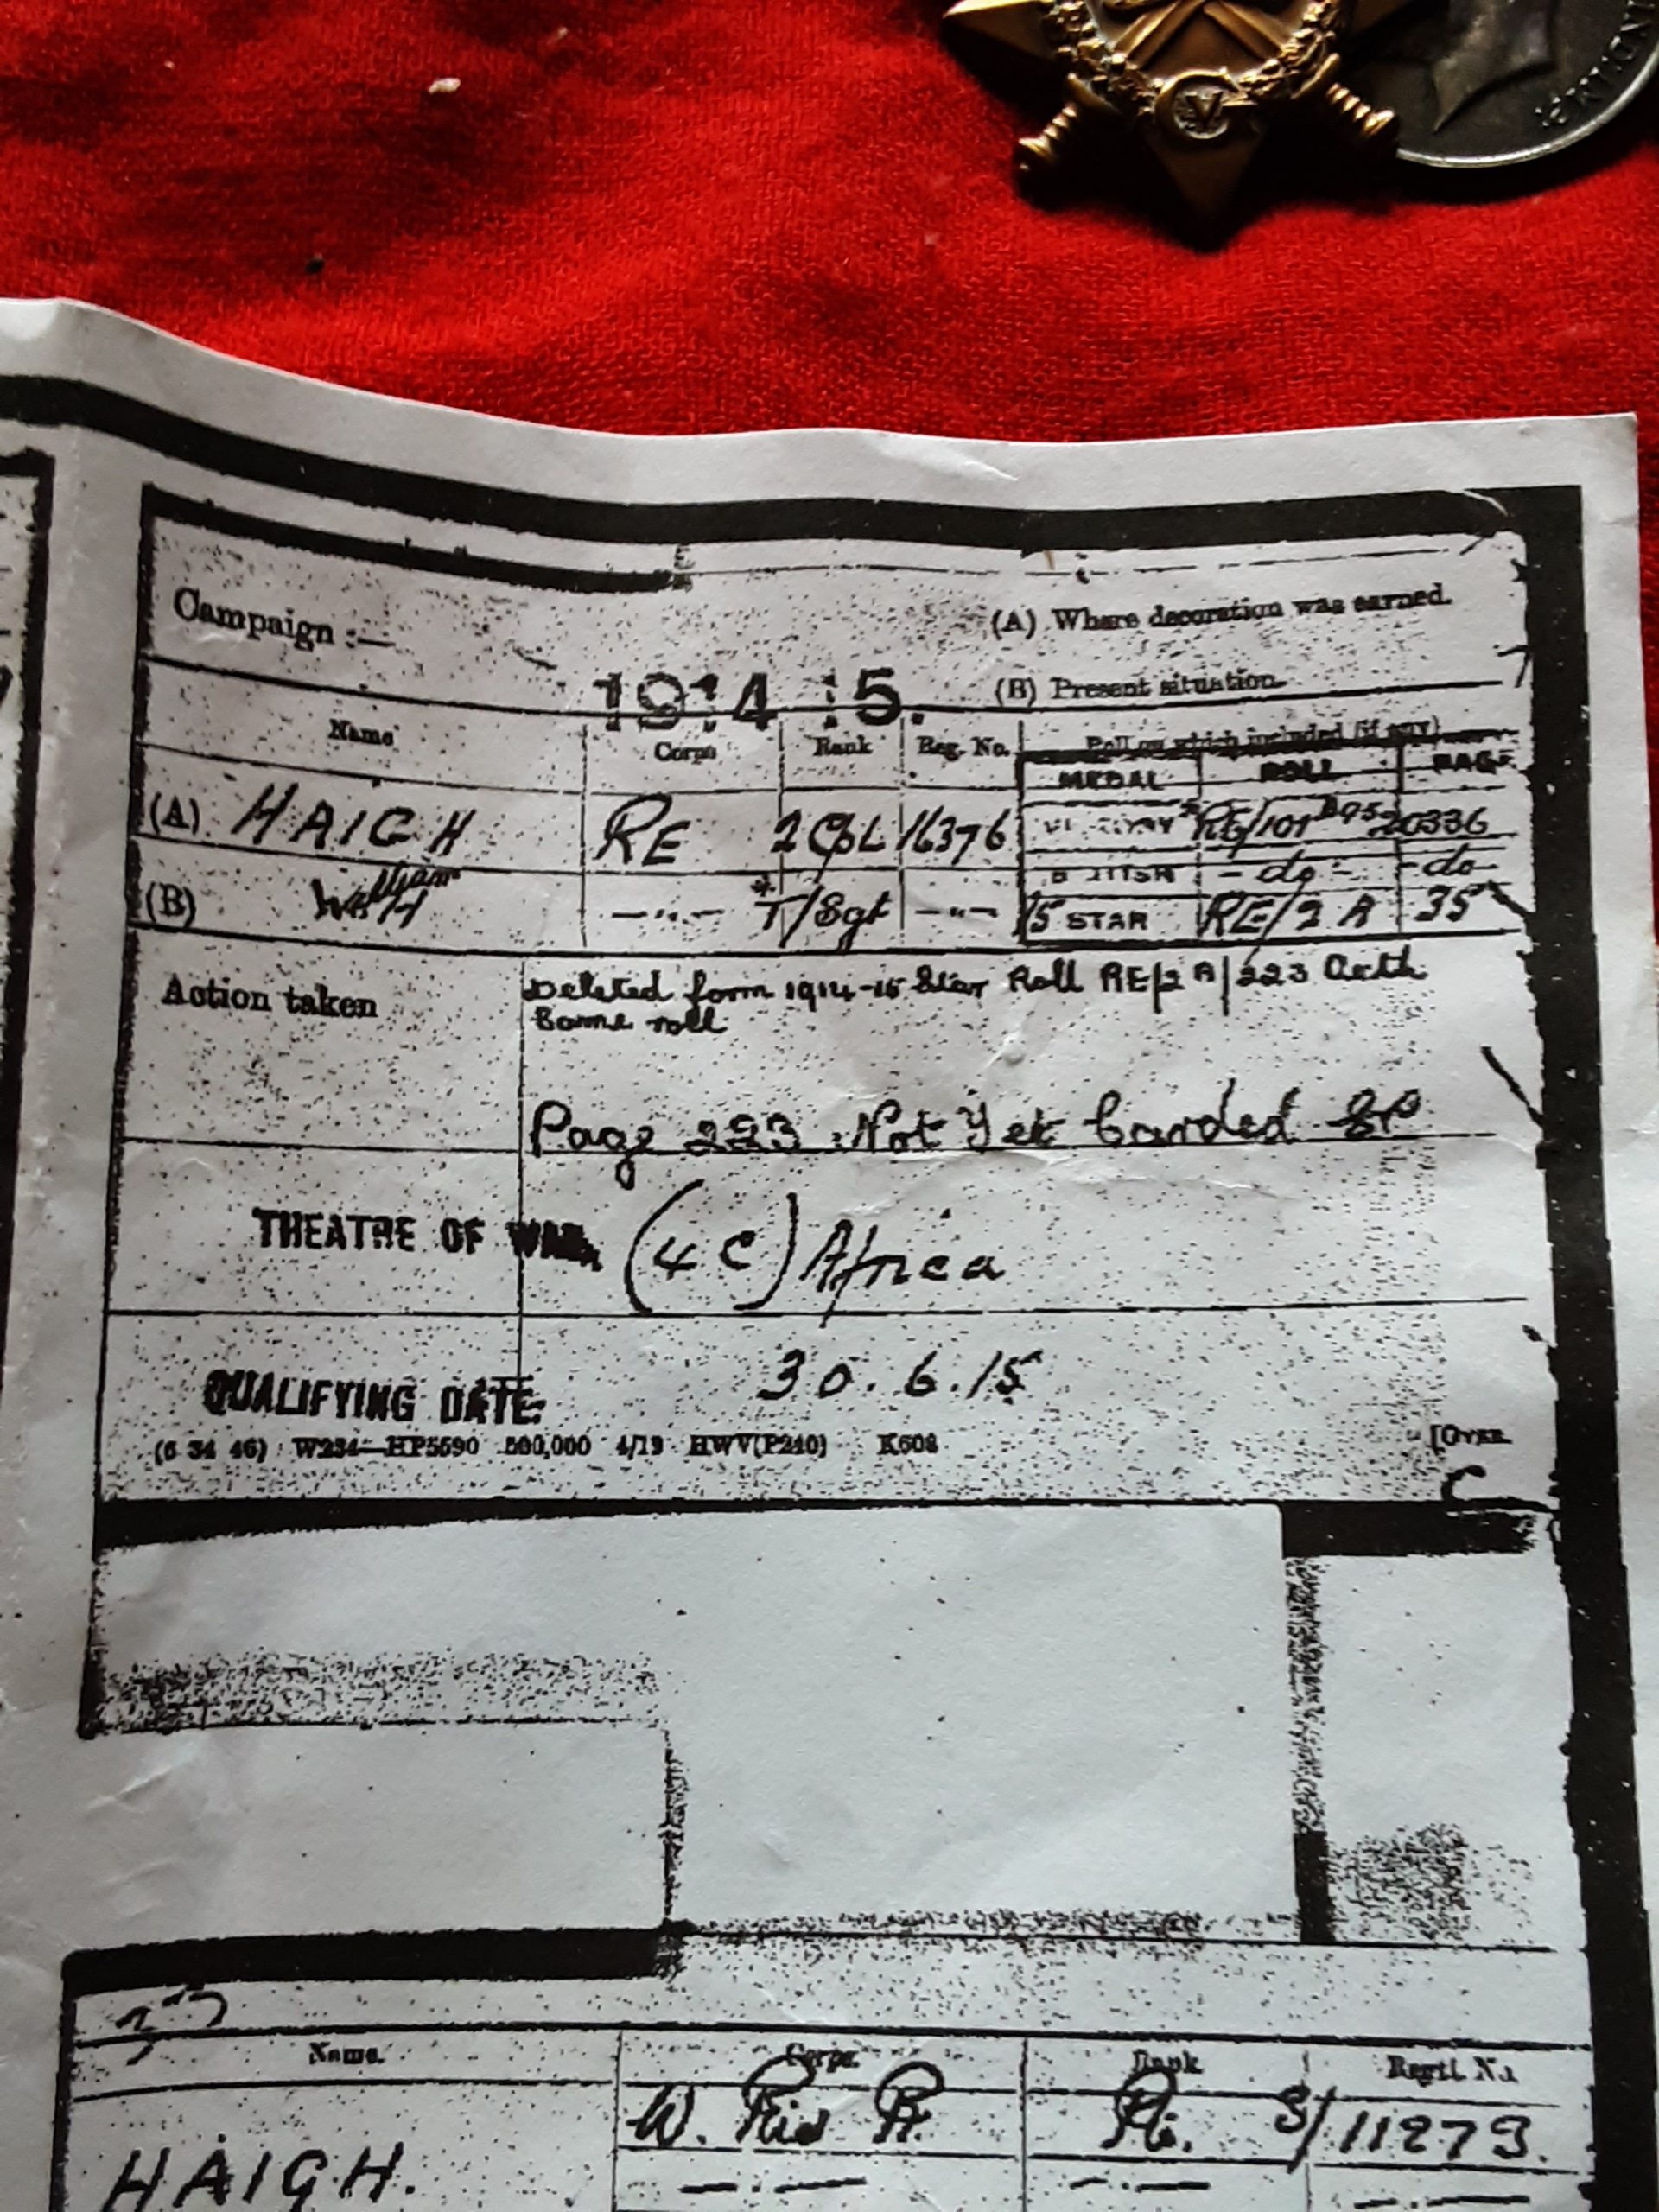 Campaign :—
(A) Where decoration was earned.
1914 15.
(B) Present situation.
Name Corps Rank Reg. No. Roll on which included (if any)
MEDAL ROLL PAGE
(A) HAIGH RE 2 CPL 16376 VICTORY RE/101 B95 20336
BRITISH -do- -do-
(B) William —"— T/Sgt —"— 15 STAR RE/2 A 35
Action taken Deleted form 1914-15 Star Roll RE/2 A/223 Auth
Same roll
Page 223 Not Yet Carded
THEATRE OF WAR (4C) Africa
QUALIFYING DATE: 30.6.15
(6 34 46) W234—HP5590 500,000 4/19 HWV(P240) K608 [OVER
Name. Corps. Rank Regtl. No.
HAIGH. W. Rid R. S/11273.
—"— —"— —"—